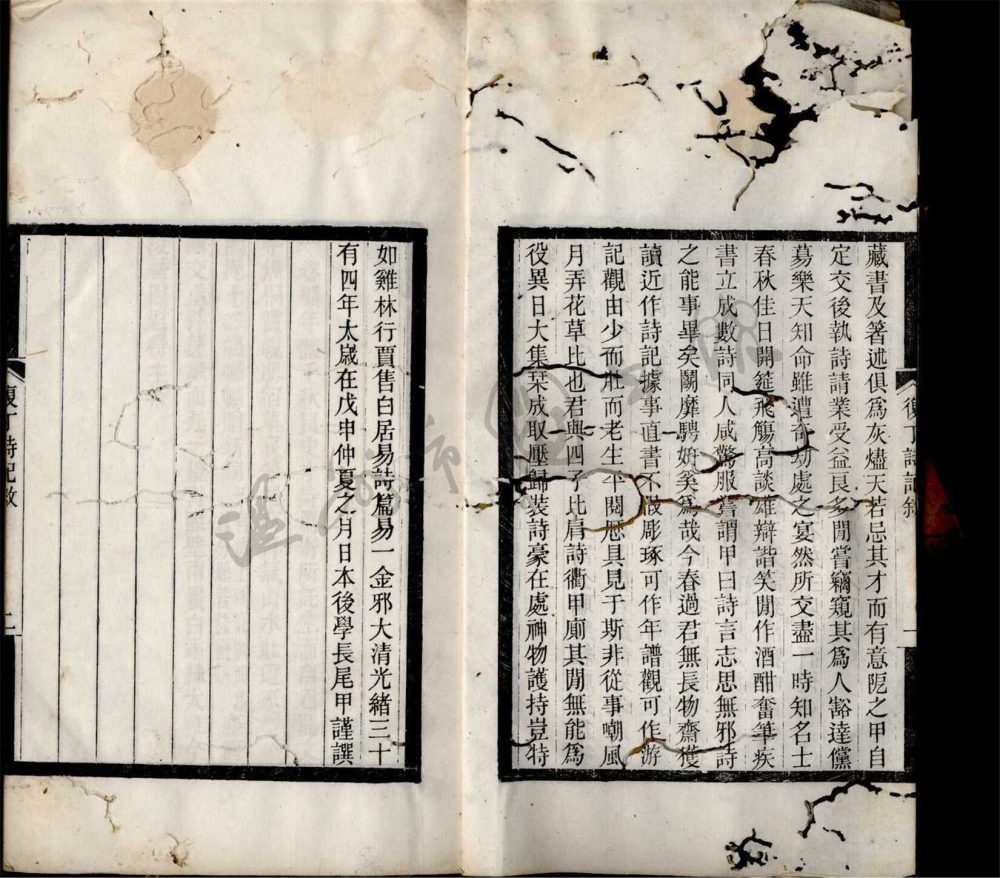 藏書及箸述俱爲灰燼天若忌其才而有意阨之甲自
定交後執詩請業受益良多閒嘗竊窺其爲人豁達儻
蕩樂天知命雖遭奇劫處之宴然所交盡一時知名士
春秋佳日開筵飛觴高談雄辯諧笑閒作酒酣奮筆疾
書立成數詩同人咸驚服嘗謂甲曰詩言志思無邪詩
之能事畢矣鬬靡騁姸奚爲哉今春過君無長物齋獲
讀近作詩記據事直書不假彫琢可作年譜觀可作游
記觀由少而壯而老生平閱歷具見于斯非從事嘲風
月弄花草比也君與四子比肩詩衢甲廁其閒無能爲
役異日大集栞成取壓歸裝詩豪在處神物護持豈特
復丁詩記敘
一
如雞林行賈售白居易詩篇易一金邪大清光緒三十
有四年太歲在戊申仲夏之月日本後學長尾甲謹譔
復丁詩記敘
二